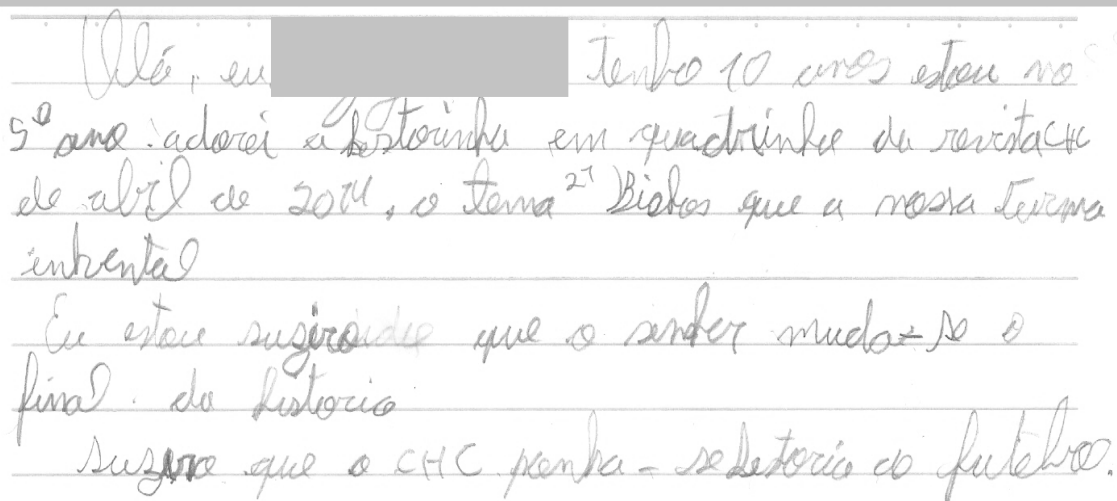 Olá, eu tenho 10 anos estou no
5º ano. adorei a historinha em quadrinho da revista CHC
de abril de 2014, o tema Bichos que a nossa turma
Eu estou que o senhor muda-se o
final da historia
que o CHC ponha-se historia do